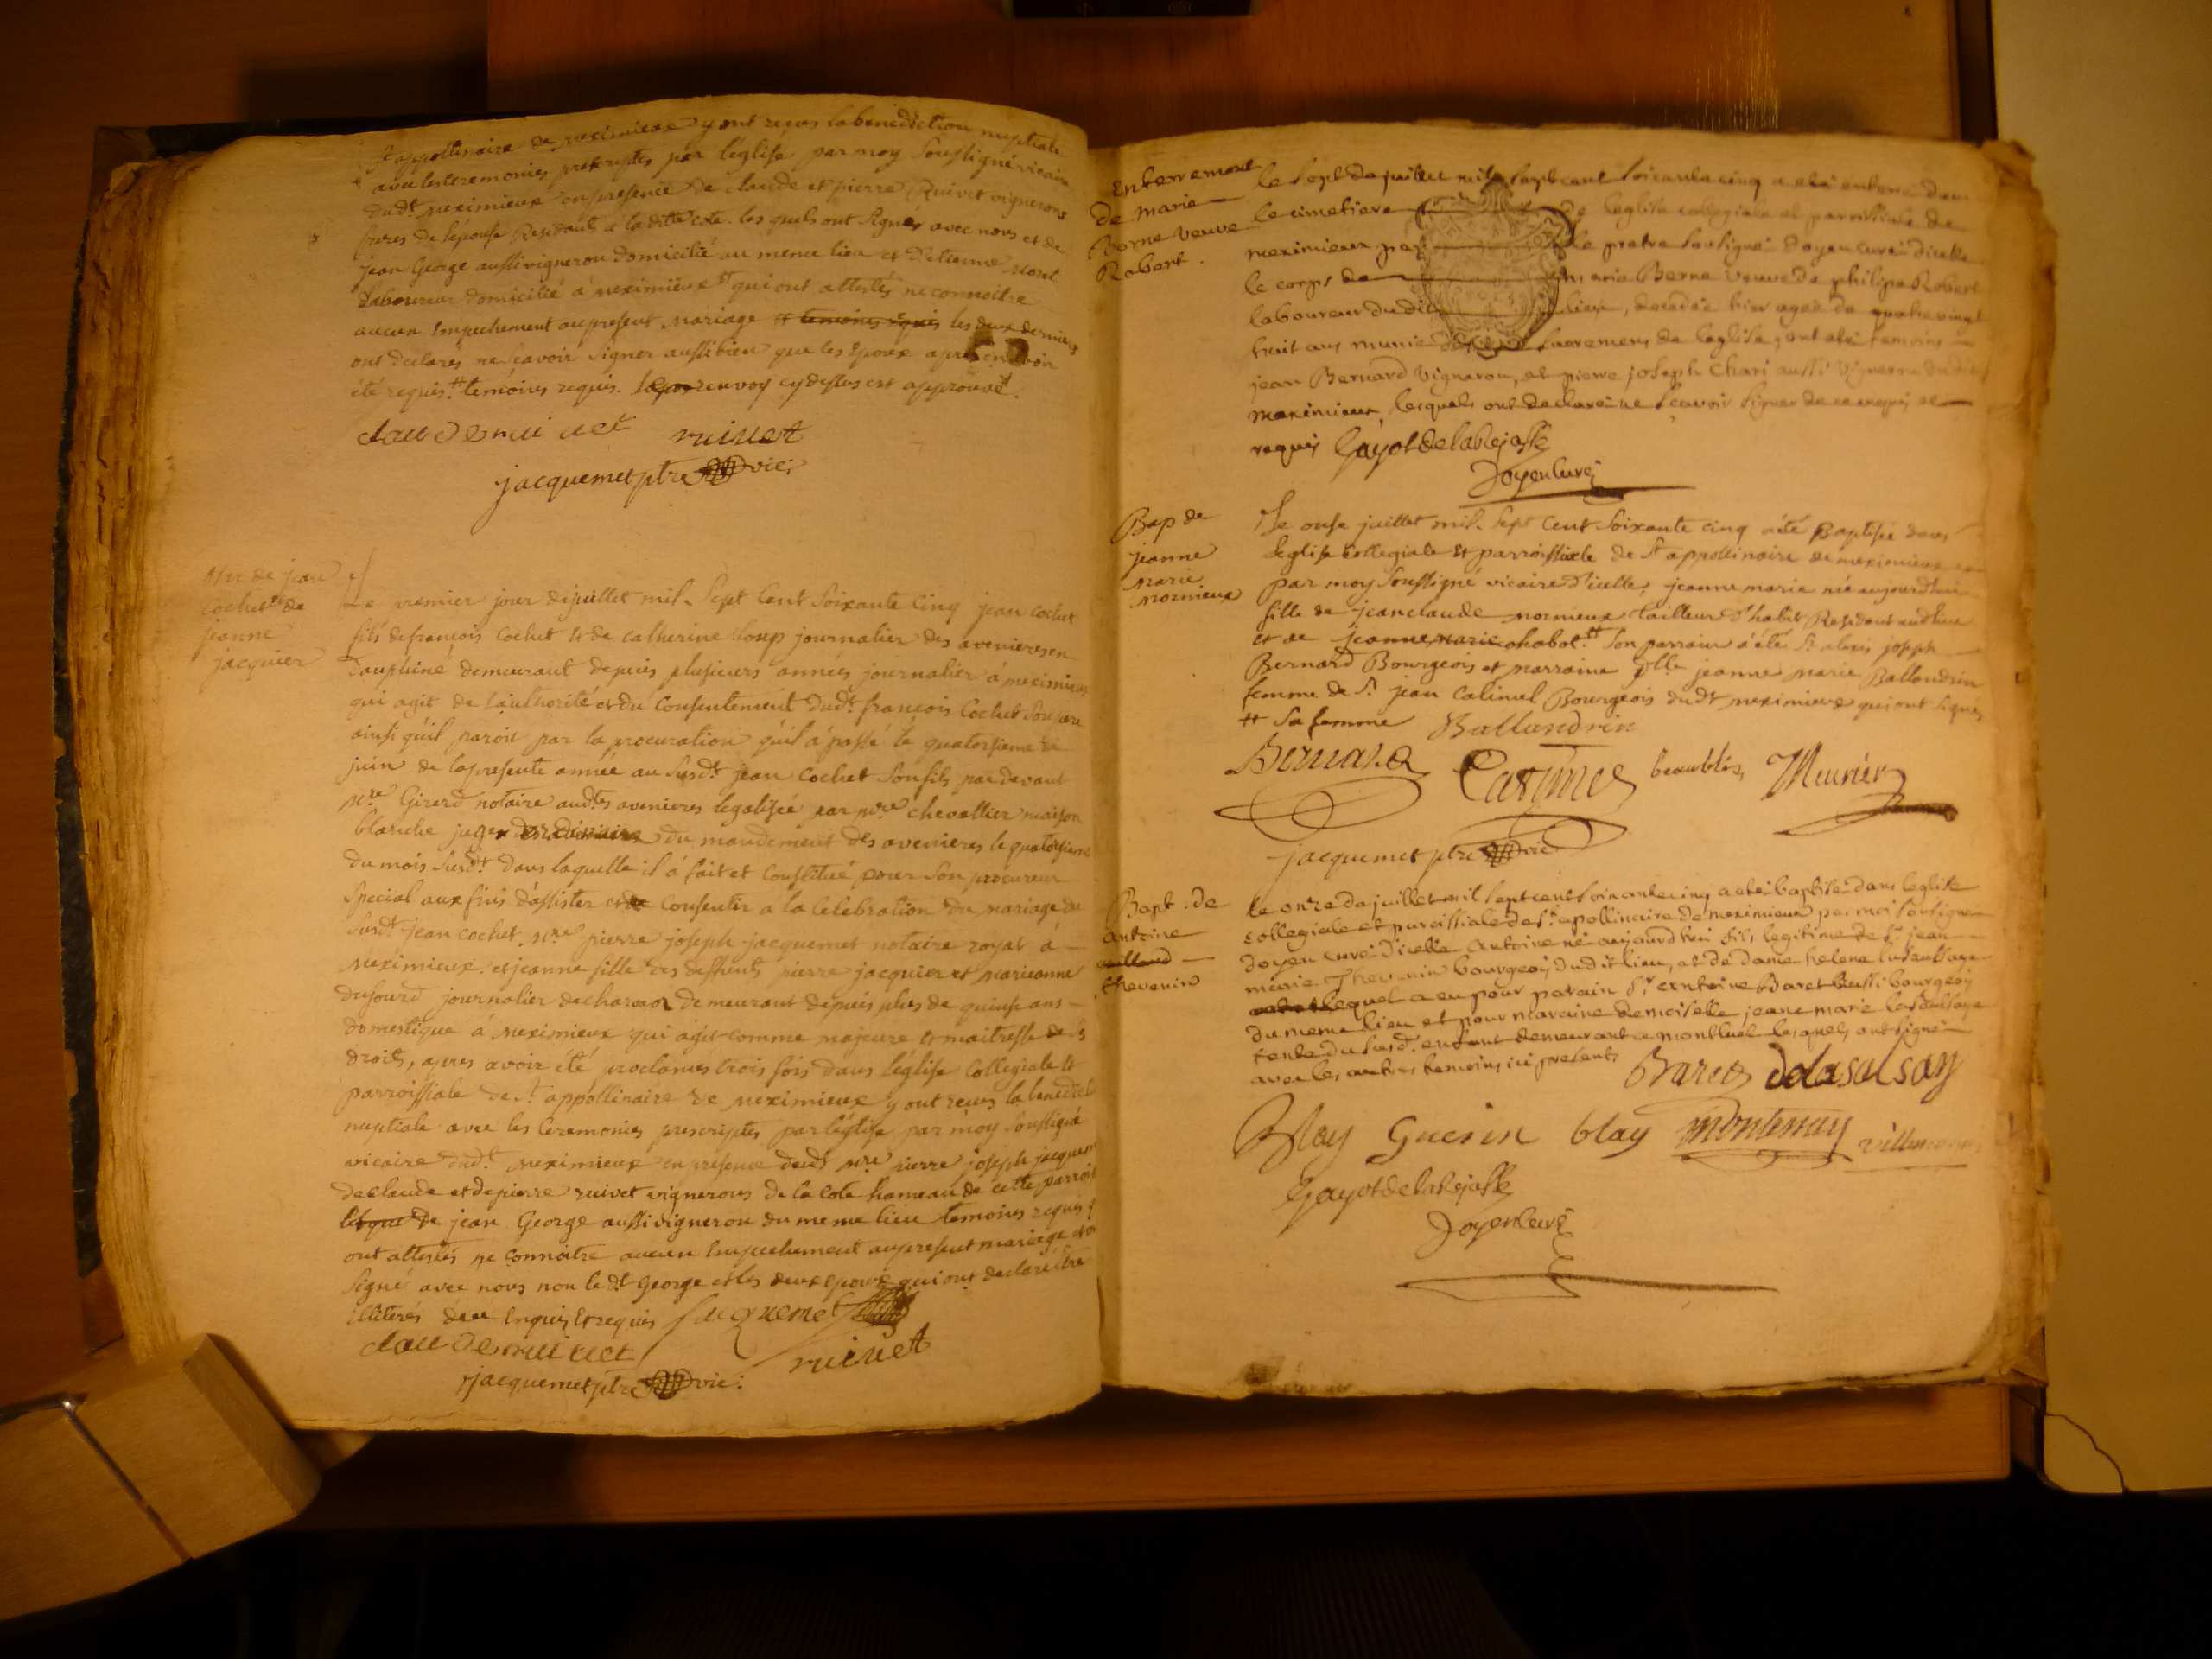 St appollinaire de meximieux y ont reçus la benediction nuptiale
avec les ceremonies prescriptes par l'eglise par moy soussigné vicaire
dudt meximieux en presence de claude et pierre Ruivet vignerons
freres de l'epouse Residants a la ditte cote. les quels ont signés avec nous et de
jean George aussi vigneron domicilié au meme lieu et d'etienne
Laboureur domicilié à meximieux tt qui ont attestés ne connoitre
aucun Empechement au present mariage les deux derniers
ont declarés ne scavoir signer aussi bien que les Epoux apres en avoir
été requis. tt temoins requis. renvoy cy dessus est approuvé.
claude rui uet ruiuet
jacquemet ptre vic:
Mar de jean
Cochet et de
jeanne
jacquier
Le premier jour de juillet mil. Sept Cent Soixante Cinq jean cochet
fils de francois Cochet et de catherine journalier des avenieres en
Dauphiné demeurant depuis plusieurs années journalier à meximieux
qui agit de l'authorité et du Consentement dudt. francois Cochet son pere
ainsi qu'il paroit par la procuration qu'il a passé le quatorsieme de
juin de la presente année au susdt. jean Cochet son fils par devant
Mre Girerd notaire audts avenieres legalisée par mre chevallier maison
blanche juge du mandement des avenieres le quatorsieme
du mois susdt. dans laquelle il a fait et Constitué pour son procureur
special aux fins d'assister et Consentir a la Celebration du mariage du
susdt. jean cochet. mre pierre joseph jacquemet notaire royal à
Meximieux. et jeanne fille des deffunts pierre jacquier et marieanne
dufourd journalier de demeurant depuis plus de quinse ans
domestique à meximieux qui agit comme majeure et maitresse de ses
droits, apres avoir été proclamés trois fois dans l'église Collegiale et
parroissiale de St. appollinaire de meximieux y ont reçus la benediction
nuptiale avec les Ceremonies prescriptes par l'église par moy soussigné
vicaire dudt. meximieux en presence dudt mre pierre joseph jacquemet
de claude et de pierre ruivet vignerons de la cote hameau de cette parroisse
de jean George aussi vigneron du meme lieu temoins requis qui
ont attestés ne connoitre aucun Empechement au present mariage et ont
signé avec nous non le dt George et les deux epoux qui ont declaré être
illiterés de ce Enquis et requis jacquemet
claude rui uet ruiuet
jacquemet ptre vic:
Enterrement
de marie
Borne veuve
Robert.
le sept de juillet mil sept cent soixante cinq a eté enterré dans
le cimetiere de l'eglise collegiale et parroissiale de
meximieux par le pretre soussigné doyen curé d'icelle
le corps de marie Berne veuve de philipe Robert
laboureur du dit lieux, decedée hier agée de quatre vingt
huit ans munie des sacremens de l'eglise, ont eté temoins
jean Bernard vigneron, et pierre joseph Chari aussi vigneron dudit
meximieux, lesquels ont declaré ne scavoir signer de ce enquis et
requis Gayot de la Rejasse
Doyen curé
Bap de
jeanne
Marie
mormieux
Le onse juillet mil. sept cent soixante cinq a été Baptisée dans
l'eglise Collegiale et parroissiale de St appollinaire de meximieux
par moy soussigné vicaire d'icelle, jeanne marie née aujourd'hui
fille de jean claude mormieux tailleur d'habit Residant audt lieu
et de jeanne marie chabot. tt son parrain a été Sr alexis joseph
Bernard Bourgeois et marraine Dlle jeanne marie Ballandrin
femme de Sr. jean Catimel Bourgeois dudt meximieux qui ont signés
tt sa femme Ballandrin
Bernard Catimel beaublis Meunier
jacquemet ptre vic
Bapt. de
antoine
thevenin
le onze de juillet mil sept cent soixante cinq a eté baptisé dans l'eglise
collegiale et paroissiale de St. apollinaire de meximieux par moi soussigné
doyen curé d'icelle Antoine né aujourd'hui fils legitime de Sr. jean
marie Thevenin bourgeois dudit lieu, et de dame helene
lequel a eu pour parain Sr. antoine Baret aussi bourgeois
du meme lieu et pour maraine demoiselle jeane marie
tente du susd. enfant demeurant a montluel lesquels ont signé
avec les autres temoins ici presents Baret delasalsay
Blay Guerin blay montenay
Gayot de la Rejasse
Doyen curé